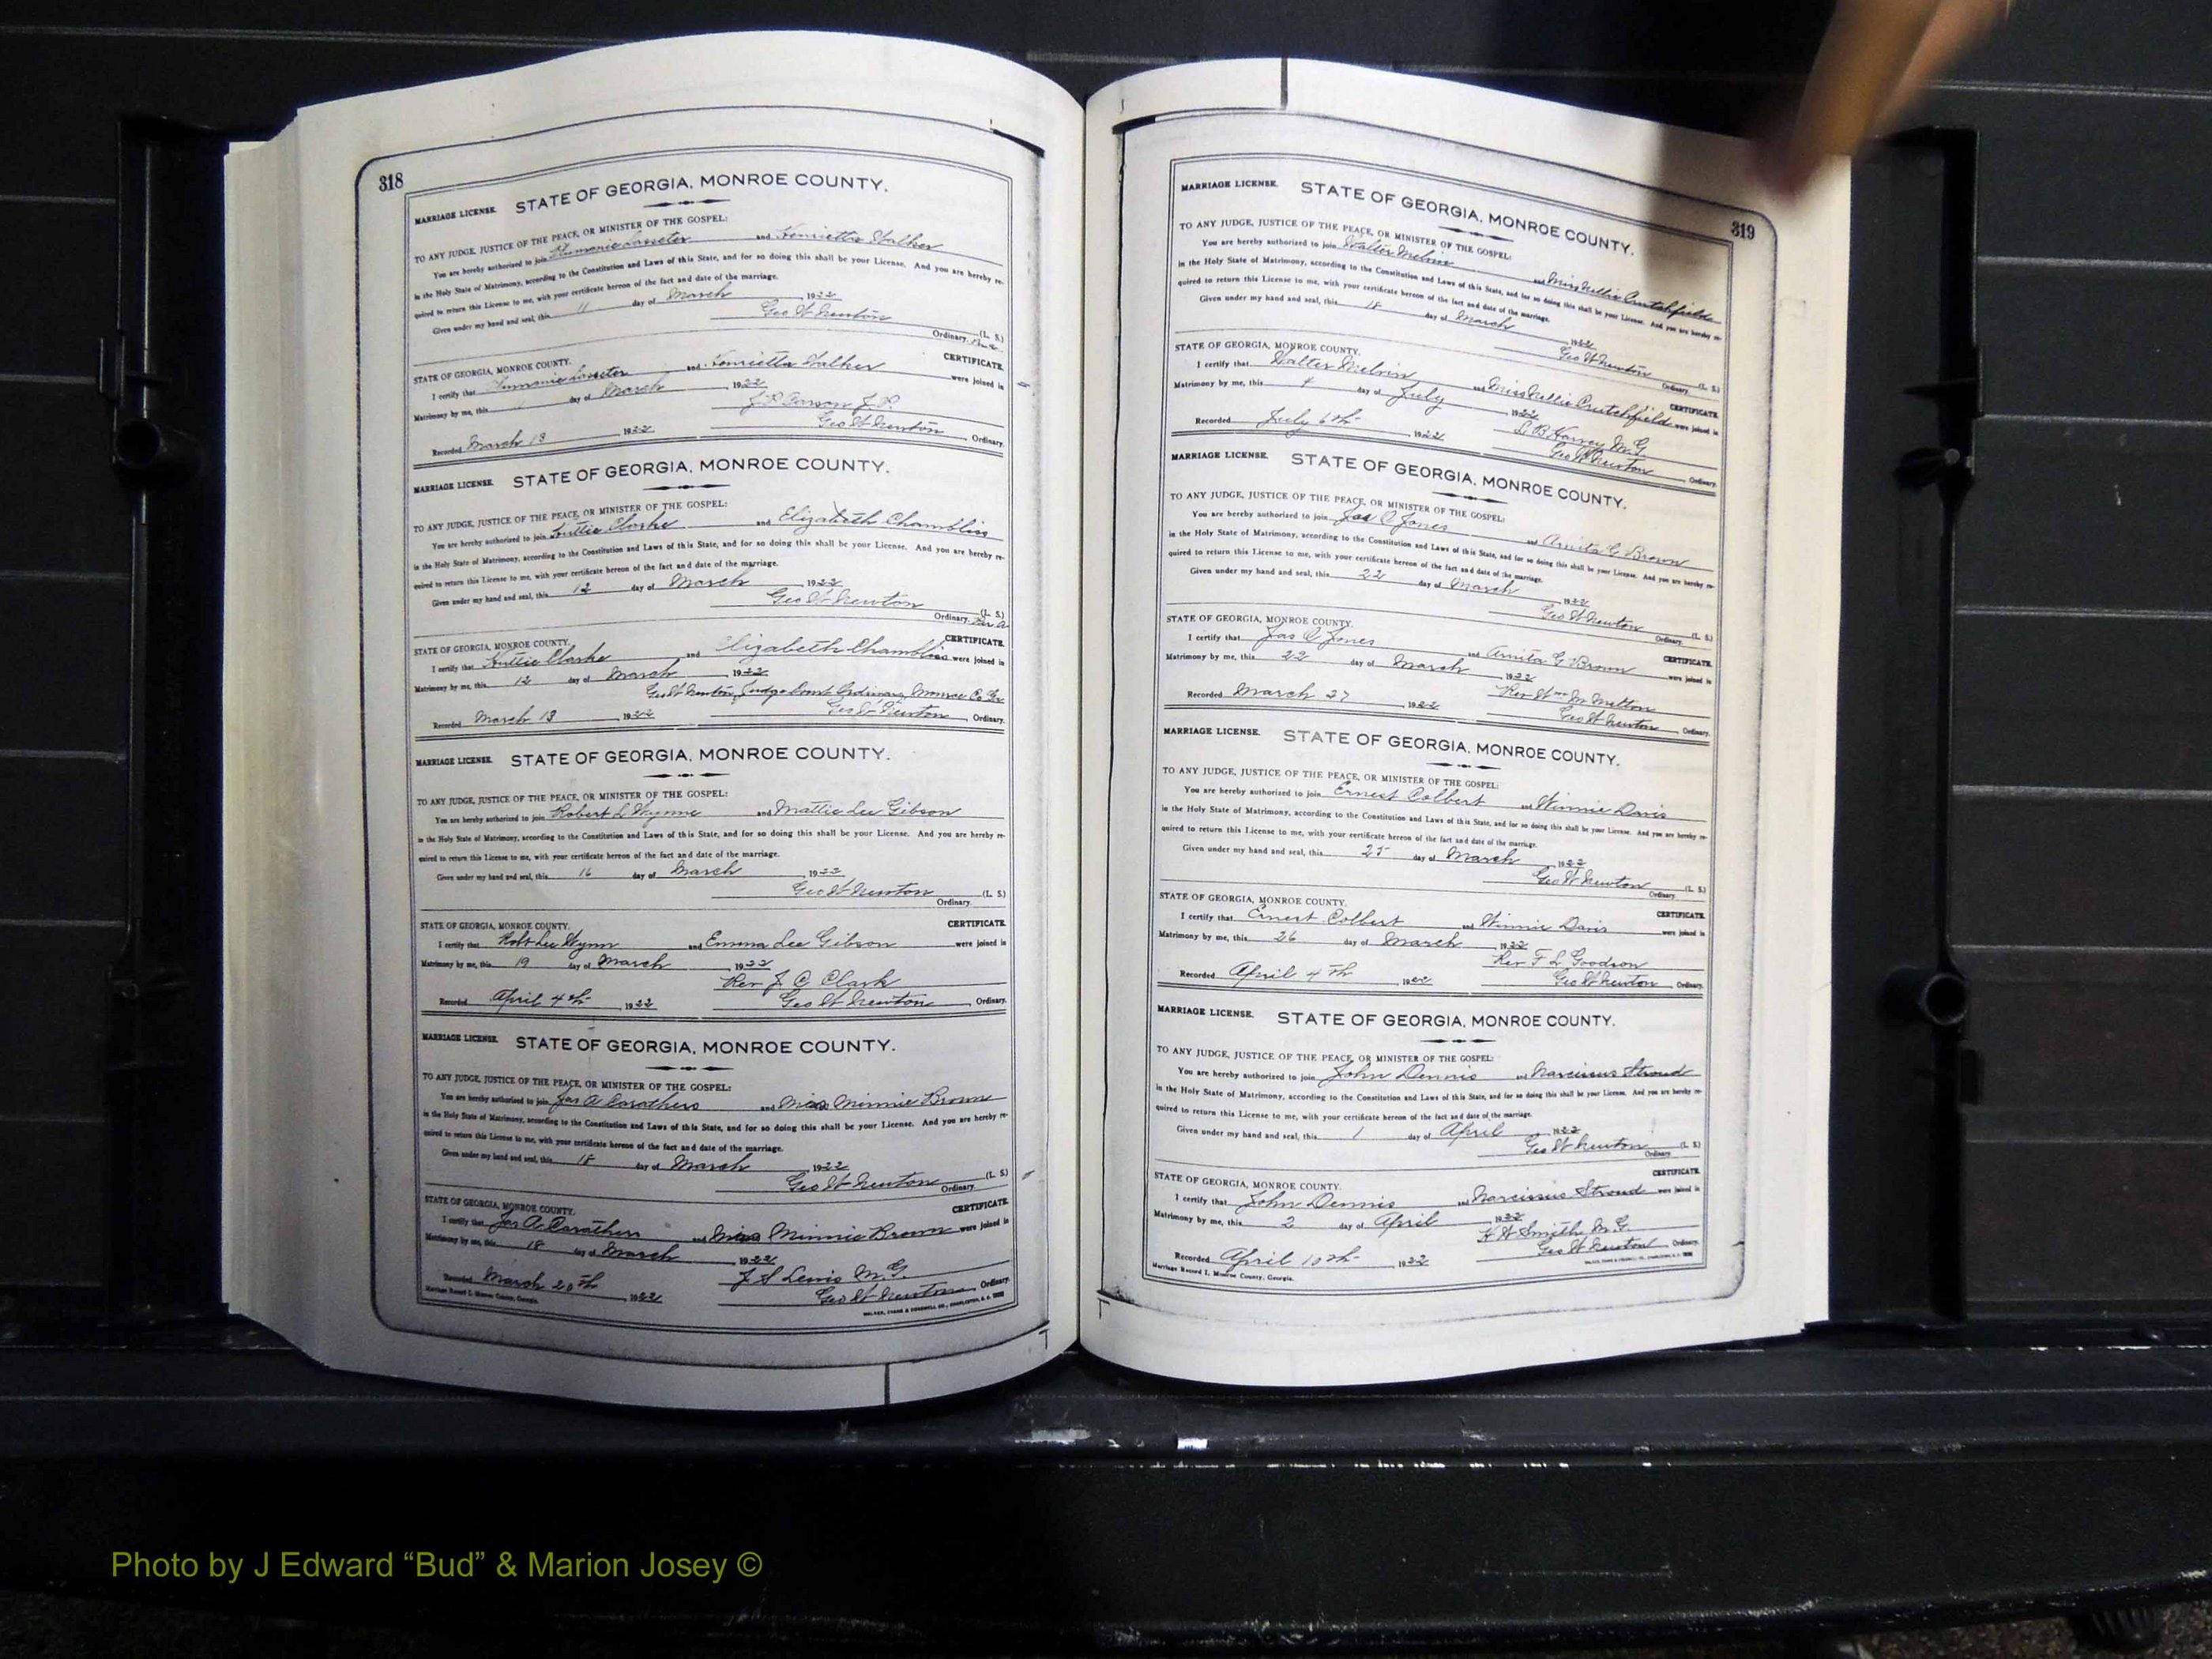 318
MARRIAGE LICENSE. STATE OF GEORGIA, MONROE COUNTY.
TO ANY JUDGE, JUSTICE OF THE PEACE, OR MINISTER OF THE GOSPEL:
You are hereby authorized to join Lasseter and Henrietta Walker
in the Holy State of Matrimony, according to the Constitution and Laws of this State, and for so doing this shall be your License. And you are hereby re-
quired to return this License to me, with your certificate hereon of the fact and date of the marriage.
Given under my hand and seal, this 11 day of March, 1922
Geo W Newton (L. S.)
Ordinary.
STATE OF GEORGIA, MONROE COUNTY. CERTIFICATE.
I certify that Lasseter and Henrietta Walker were joined in
Matrimony by me, this day of March, 1922
J. P.
Recorded March 13, 1922 Geo W Newton, Ordinary.
MARRIAGE LICENSE. STATE OF GEORGIA, MONROE COUNTY.
TO ANY JUDGE, JUSTICE OF THE PEACE, OR MINISTER OF THE GOSPEL:
You are hereby authorized to join Clarke and Elizabeth Chambliss
in the Holy State of Matrimony, according to the Constitution and Laws of this State, and for so doing this shall be your License. And you are hereby re-
quired to return this License to me, with your certificate hereon of the fact and date of the marriage.
Given under my hand and seal, this 12 day of March, 1922
Geo W Newton (L. S.)
Ordinary.
STATE OF GEORGIA, MONROE COUNTY. CERTIFICATE.
I certify that Clarke and Elizabeth Chambliss were joined in
Matrimony by me, this 12 day of March, 1922
Geo W Newton, Judge Court Ordinary, Monroe Co Ga
Recorded March 13, 1922 Geo W Newton, Ordinary.
MARRIAGE LICENSE. STATE OF GEORGIA, MONROE COUNTY.
TO ANY JUDGE, JUSTICE OF THE PEACE, OR MINISTER OF THE GOSPEL:
You are hereby authorized to join Robert L Wynne and Mattie Lee Gibson
in the Holy State of Matrimony, according to the Constitution and Laws of this State, and for so doing this shall be your License. And you are hereby re-
quired to return this License to me, with your certificate hereon of the fact and date of the marriage.
Given under my hand and seal, this 16 day of March, 1922
Geo W Newton (L. S.)
Ordinary.
STATE OF GEORGIA, MONROE COUNTY. CERTIFICATE.
I certify that Robt Lee Wynn and Emma Lee Gibson were joined in
Matrimony by me, this 19 day of March, 1922
Rev J. C. Clark
Recorded April 4th, 1922 Geo W Newton, Ordinary.
MARRIAGE LICENSE. STATE OF GEORGIA, MONROE COUNTY.
TO ANY JUDGE, JUSTICE OF THE PEACE, OR MINISTER OF THE GOSPEL:
You are hereby authorized to join Jas A Carathers and Miss Minnie Brown
in the Holy State of Matrimony, according to the Constitution and Laws of this State, and for so doing this shall be your License. And you are hereby re-
quired to return this License to me, with your certificate hereon of the fact and date of the marriage.
Given under my hand and seal, this 18 day of March, 1922
Geo W Newton (L. S.)
Ordinary.
STATE OF GEORGIA, MONROE COUNTY. CERTIFICATE.
I certify that Jas A Carathers and Miss Minnie Brown were joined in
Matrimony by me, this 18 day of March, 1922
J S Lewis M. G.
Recorded March 20th, 1922 Geo W Newton, Ordinary.
Marriage Record I, Monroe County, Georgia.
319
MARRIAGE LICENSE. STATE OF GEORGIA, MONROE COUNTY.
TO ANY JUDGE, JUSTICE OF THE PEACE, OR MINISTER OF THE GOSPEL:
You are hereby authorized to join Walter Melvin and Miss Nellie Crutchfield
in the Holy State of Matrimony, according to the Constitution and Laws of this State, and for so doing this shall be your License. And you are hereby re-
quired to return this License to me, with your certificate hereon of the fact and date of the marriage.
Given under my hand and seal, this 18 day of March, 1922
Geo W Newton (L. S.)
Ordinary.
STATE OF GEORGIA, MONROE COUNTY. CERTIFICATE.
I certify that Walter Melvin and Miss Nellie Crutchfield were joined in
Matrimony by me, this 4 day of July, 1922
L. B. Harvey M. G.
Recorded July 6th, 1922 Geo W Newton, Ordinary.
MARRIAGE LICENSE. STATE OF GEORGIA, MONROE COUNTY.
TO ANY JUDGE, JUSTICE OF THE PEACE, OR MINISTER OF THE GOSPEL:
You are hereby authorized to join Jas O Jones and Annita G Brown
in the Holy State of Matrimony, according to the Constitution and Laws of this State, and for so doing this shall be your License. And you are hereby re-
quired to return this License to me, with your certificate hereon of the fact and date of the marriage.
Given under my hand and seal, this 22 day of March, 1922
Geo W Newton (L. S.)
Ordinary.
STATE OF GEORGIA, MONROE COUNTY. CERTIFICATE.
I certify that Jas O Jones and Annita G Brown were joined in
Matrimony by me, this 22 day of March, 1922
Rev Wm M Melton
Recorded March 27, 1922 Geo W Newton, Ordinary.
MARRIAGE LICENSE. STATE OF GEORGIA, MONROE COUNTY.
TO ANY JUDGE, JUSTICE OF THE PEACE, OR MINISTER OF THE GOSPEL:
You are hereby authorized to join Ernest Colbert and Winnie Davis
in the Holy State of Matrimony, according to the Constitution and Laws of this State, and for so doing this shall be your License. And you are hereby re-
quired to return this License to me, with your certificate hereon of the fact and date of the marriage.
Given under my hand and seal, this 25 day of March, 1922
Geo W Newton (L. S.)
Ordinary.
STATE OF GEORGIA, MONROE COUNTY. CERTIFICATE.
I certify that Ernest Colbert and Winnie Davis were joined in
Matrimony by me, this 26 day of March, 1922
Rev F L Goodson
Recorded April 4th, 1922 Geo W Newton, Ordinary.
MARRIAGE LICENSE. STATE OF GEORGIA, MONROE COUNTY.
TO ANY JUDGE, JUSTICE OF THE PEACE, OR MINISTER OF THE GOSPEL:
You are hereby authorized to join John Dennis and Narcissus Stroud
in the Holy State of Matrimony, according to the Constitution and Laws of this State, and for so doing this shall be your License. And you are hereby re-
quired to return this License to me, with your certificate hereon of the fact and date of the marriage.
Given under my hand and seal, this 1 day of April, 1922
Geo W Newton (L. S.)
Ordinary.
STATE OF GEORGIA, MONROE COUNTY. CERTIFICATE.
I certify that John Dennis and Narcissus Stroud were joined in
Matrimony by me, this 2 day of April, 1922
H W Smith M. G.
Recorded April 10th, 1922 Geo W Newton, Ordinary.
Marriage Record I, Monroe County, Georgia.
Photo by J Edward “Bud” & Marion Josey ©